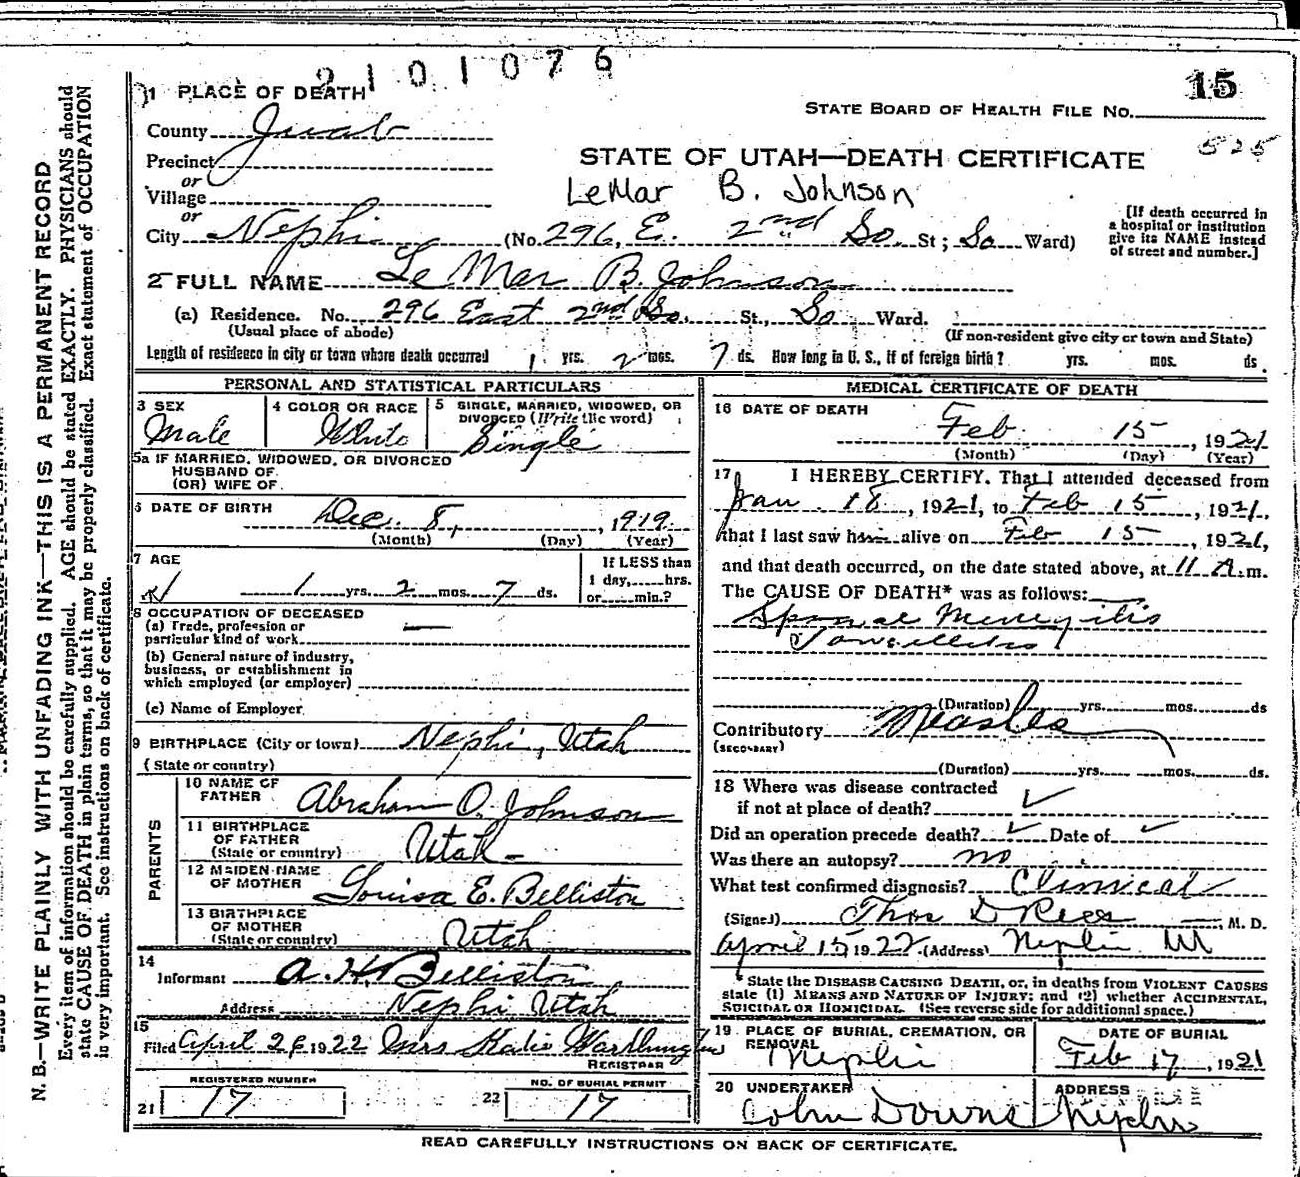 2101076
15
1 PLACE OF DEATH
STATE BOARD OF HEALTH FILE No.
County Juab
525
Precinct
STATE OF UTAH—DEATH CERTIFICATE
or
Village
LeMar B. Johnson
or
City Nephi (No. 296, E. 2nd So. St; So Ward)
[If death occurred in a hospital or institution give its NAME instead of street and number.]
2 FULL NAME Le Mar B. Johnson
(a) Residence. No. 296 East 2nd So. St., So Ward.
(Usual place of abode) (If non-resident give city or town and State)
Length of residence in city or town where death occurred 1 yrs. 2 mos. 7 ds. How long in U. S., if of foreign birth? yrs. mos. ds.
PERSONAL AND STATISTICAL PARTICULARS
3 SEX Male
4 COLOR OR RACE White
5 SINGLE, MARRIED, WIDOWED, OR DIVORCED (Write the word) Single
5a IF MARRIED, WIDOWED, OR DIVORCED
HUSBAND OF
(OR) WIFE OF
6 DATE OF BIRTH Dec. 8, 1919
(Month) (Day) (Year)
7 AGE
1 yrs. 2 mos. 7 ds.
If LESS than
1 day, hrs.
or min.?
8 OCCUPATION OF DECEASED
(a) Trade, profession or
particular kind of work —
(b) General nature of industry,
business, or establishment in
which employed (or employer)
(c) Name of Employer
9 BIRTHPLACE (City or town) Nephi, Utah
(State or country)
PARENTS
10 NAME OF FATHER Abraham O. Johnson
11 BIRTHPLACE OF FATHER Utah -
(State or country)
12 MAIDEN NAME OF MOTHER Louisa E. Belliston
13 BIRTHPLACE OF MOTHER Utah
(State or country)
14
Informant A. H. Belliston
Address Nephi Utah
15
Filed April 26 1922 Mrs Katie Warthington
REGISTRAR
REGISTERED NUMBER
21 17
NO. OF BURIAL PERMIT
22 17
MEDICAL CERTIFICATE OF DEATH
16 DATE OF DEATH
Feb. 15, 1921
(Month) (Day) (Year)
17 I HEREBY CERTIFY. That I attended deceased from
Jan. 18, 1921, to Feb 15, 1921,
that I last saw him alive on Feb 15, 1921,
and that death occurred, on the date stated above, at 11 A.m.
The CAUSE OF DEATH* was as follows:
Spinal Meningitis
Tonsillitis
(Duration) yrs. mos. ds
Contributory Measles
(SECONDARY)
(Duration) yrs. mos. ds.
18 Where was disease contracted
if not at place of death? ✓
Did an operation precede death? ✓ Date of ✓
Was there an autopsy? no
What test confirmed diagnosis? Clinical
(Signed) Thos D Rees, M. D.
April 15 1922. (Address) Nephi Ut
* State the DISEASE CAUSING DEATH, or, in deaths from VIOLENT CAUSES
state (1) MEANS AND NATURE OF INJURY; and (2) whether ACCIDENTAL,
SUICIDAL OR HOMICIDAL. (See reverse side for additional space.)
19 PLACE OF BURIAL, CREMATION, OR REMOVAL Nephi
DATE OF BURIAL
Feb 17, 1921
20 UNDERTAKER
ADDRESS
Downs Nephi
READ CAREFULLY INSTRUCTIONS ON BACK OF CERTIFICATE.
N. B.—WRITE PLAINLY WITH UNFADING INK—THIS IS A PERMANENT RECORD
Every item of information should be carefully supplied. AGE should be stated EXACTLY. PHYSICIANS should
state CAUSE OF DEATH in plain terms, so that it may be properly classified. Exact statement of OCCUPATION
is very important. See instructions on back of certificate.